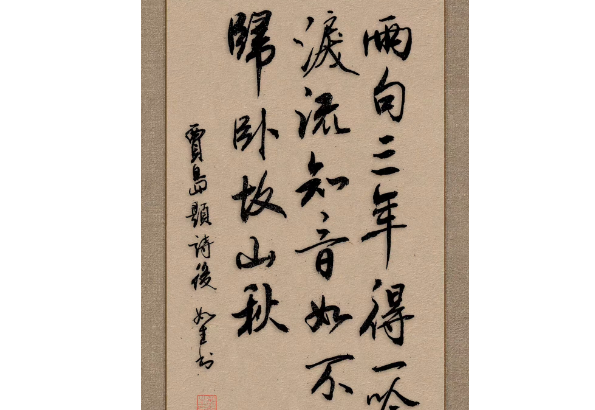 兩句三年得一吟
淚流知音如不
歸卧故山秋
賈島題詩後